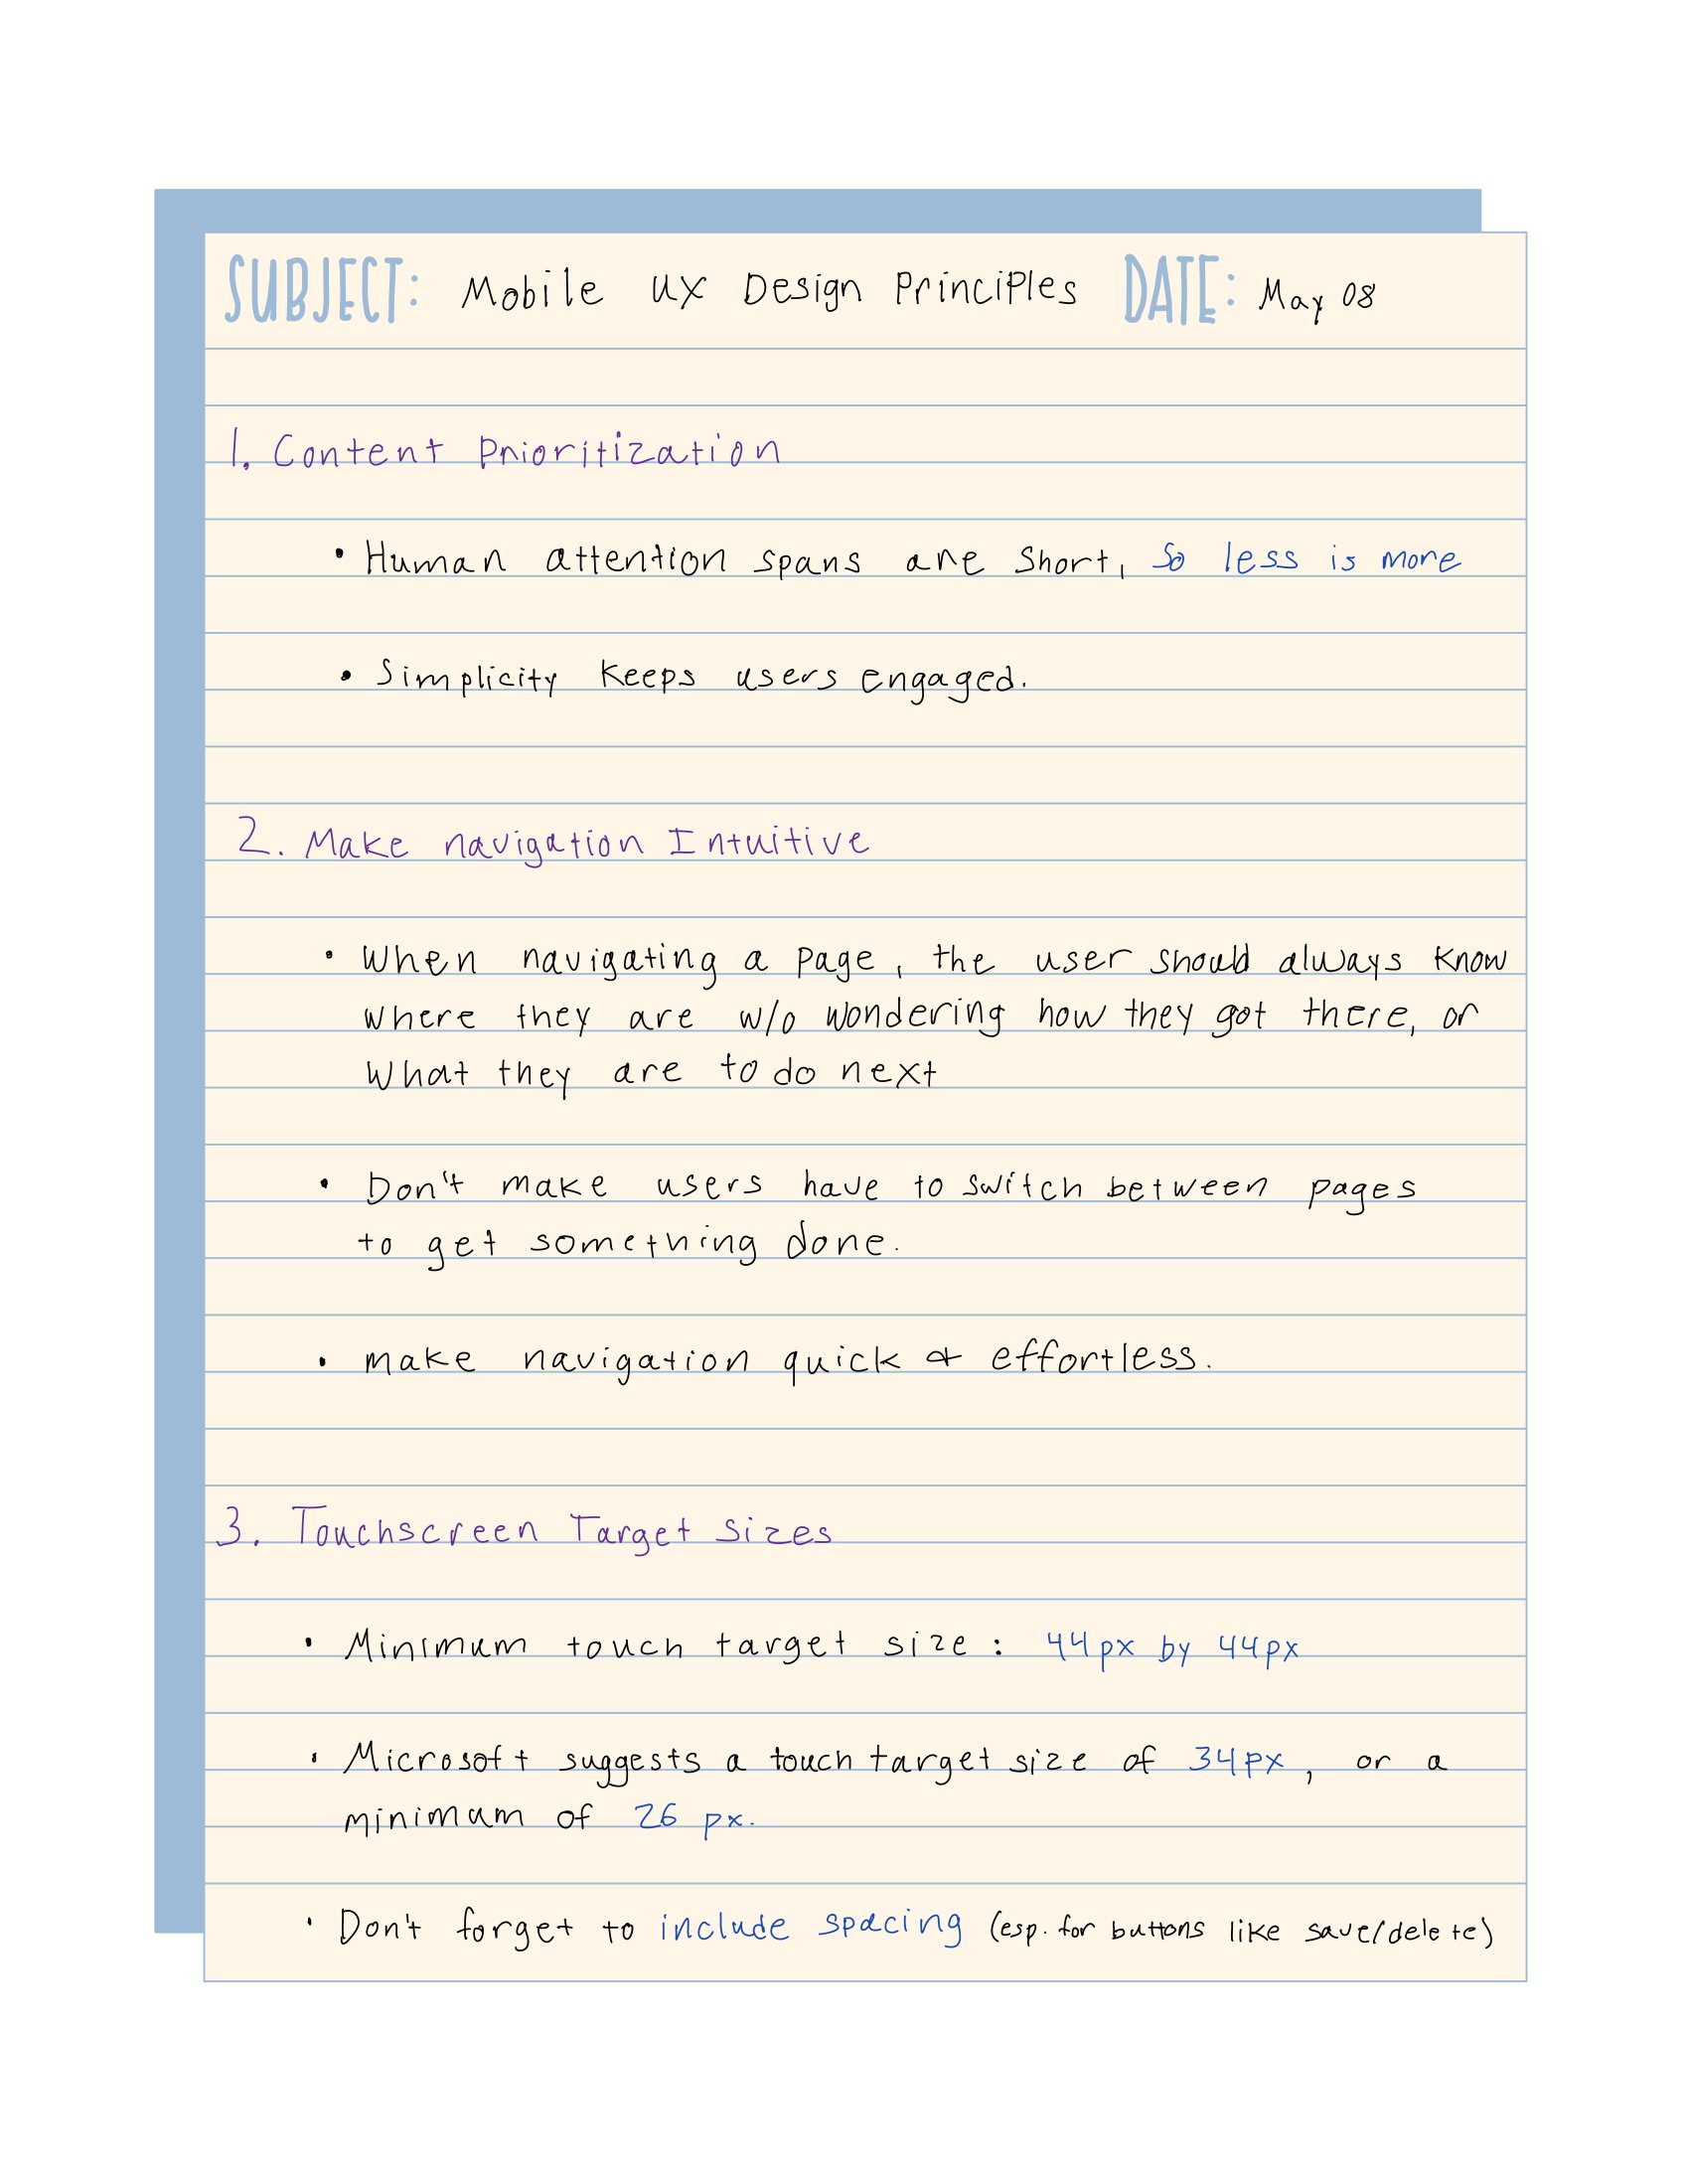 SUBJECT: Mobile UX Design Principles DATE: May 08
1. Content Prioritization
• Human attention spans are short, so less is more
• Simplicity keeps users engaged.
2. Make navigation Intuitive
• When navigating a page, the user should always know
where they are w/o wondering how they got there, or
what they are to do next
• Don't make users have to switch between pages
to get something done.
• make navigation quick & effortless.
3. Touchscreen Target Sizes
• Minimum touch target size: 44px by 44px
• Microsoft suggests a touch target size of 34px, or a
minimum of 26 px.
• Don't forget to include spacing (esp. for buttons like save/delete)